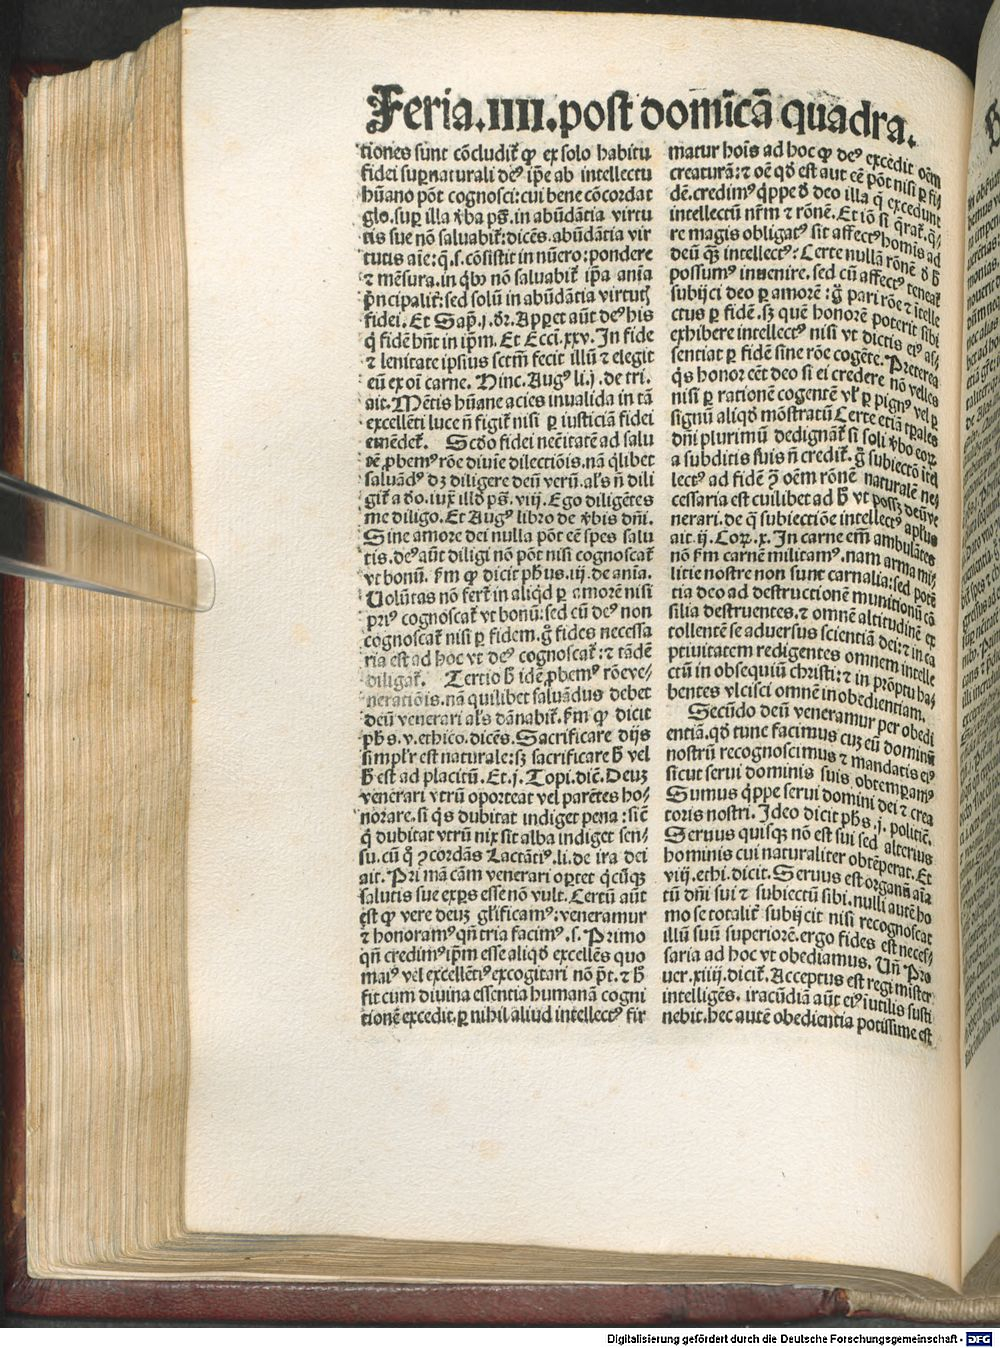 Feria.IIII.post domīcā quadra.
tiones sunt cōcludit̄ ꝙ ex solo habitu
fidei sup̄naturali deꝰ ip̄e ab intellectu
hūano pōt cognosci: cui bene cōcordat
glo. sup̄ illa v̄ba pš. in abūdātia virtu
tis sue nō saluabit̄: dicēs. abūdātia vir
tutis aīe: q̄. s. cōsistit in nūero: pondere
⁊ mēsura. in qͥbꝰ nō saluabit̄ ip̄a aīa
p̄ncipalit̄: sed solū in abūdātia virtutꝭ
fidei. Et Sap̄. j. dr̄. Apparet aūt deꝰ his
q̄ fidē hn̄t in ip̄m. Et Ecci. xxv. In fide
⁊ lenitate ipsius sctm̄ fecit illū ⁊ elegit
eū ex oī carne. Hinc. Augꝰ li. j. de tri.
ait. Mētis hūane acies inualida in tā
excellēti luce n̄ figit̄ nisi ꝑ iusticiā fidei
emēdet̄. Scd̄o fidei neēitatē ad salu
tē ꝓbemꝰ rōe diuīe dilectiōis. nā qͥlibet
saluādꝰ dꝫ diligere deū verū. al̄s n̄ dili
git̄ a deo. iux̄ illd̄ pš. viij. Ego diligētes
me diligo. Et Augꝰ libro de v̄bis dn̄i.
Sine amore dei nulla pōt eē spes salu
tis. deꝰ aūt diligi nō pōt nisi cognoscat̄
vt bonū. ẜm ꝙ dicit ph̄us. iij. de aīa.
Volūtas nō fert̄ in aliqͥd ꝑ amorē nisi
priꝰ cognoscat̄ vt bonū: sed cū deꝰ non
cognoscat̄ nisi ꝑ fidem. g̊ fides necessa
ria est ad hoc vt deꝰ cognoscat̄: ⁊ tādē
diligat̄. Tertio h̄ idē ꝓbemꝰ rōe ve⸗
nerationis. nā quilibet saluādus debet
deū venerari al̄s dānabit̄. ẜm ꝙ dicit
ph̄s. v. ethico. dicēs. Sacrificare dijs
simplr̄ est naturale: sꝫ sacrificare h̄ vel
h̄ est ad placitū. Et. j. Topi. diē. Deuꝫ
venerari vtrū oporteat vel parētes ho⸗
norare. si qͥs dubitat indiget pena: si cē
q̄ dubitat vtrū nix sit alba indiget sen⸗
su. cū q̊ ꝯcordās Lactātiꝰ. li. de ira dei
ait. Pri mā cām venerari oꝑtet q̄cūqꝫ
salutis sue expers esse nō vult. Certū aūt
est ꝙ vere deuꝫ glīficamꝰ: veneramur
⁊ honoramꝰ qn̄ tria facimꝰ. s. Primo
qn̄ credimꝰ ip̄m esse aliqd̄ excellēs quo
maiꝰ vel excellētiꝰ excogitari nō p̄t. ⁊ h̄
fit cum diuina essentia humanā cogni
tionē excedit. ꝑ nihil aliud intellectꝰ fir
matur hoīs ad hoc ꝙ deꝰ excedit oēm
creaturā: ⁊ oē qd̄ est aut eē pōt nisi ꝑ fi⸗
dē. credimꝰ qͥppe d̄ deo illa q̄ excedunt
intellectū nr̄m ⁊ rōnē. Et iō si q̄rat̄. q̄⸗
re magis obligatꝰ sit affectꝰ homīs ad
deū qꝫ intellectꝰ: Certe nullā rōnē d̄ h̄
possumꝰ inuenire. sed cū affectꝰ teneat̄
subijci deo ꝑ amorē: g̊ pari rōe ⁊ ītelle
ctus ꝑ fidē. sꝫ quē honorē poterit sibi
exhibere intellectꝰ nisi vt dictis eiꝰ as⸗
sentiat ꝑ fidē sine rōe cogēte. Preterea
qͥs honor eēt deo si ei credere nō velles
nisi ꝑ rationē cogentē vl̄ ꝑ pignꝰ vel ꝑ
signū aliqd̄ mōstratū Certe etiā tꝑales
dn̄i plurimū dedignāt̄ si soli v̄bo eoꝝ
a subditis suis n̄ credit̄. g̊ subiectō ītel
lectꝰ ad fidē ꝯ̄ oēm rōnē naturalē ne⸗
cessaria est cuilibet ad h̄ vt possꝫ deū ve
nerari. de q̄ subiectiōe intellectꝰ apl̄us
ait. ij. Coꝝ. x. In carne em̄ ambulātes
nō ẜm carnē militamꝰ. nam arma mi⸗
litie nostre non sunt carnalia: sed potē
tia deo ad destructionē munitionū cō
silia destruentes. ⁊ omnē altitudinē ex
tollentē se aduersus scientiā dei: ⁊ in ca
ptiuitatem redigentes omnem intelle
ctū in obsequiū christi: ⁊ in prōptu ha⸗
bentes vlcisci omnē inobedientiam.
Secūdo deū veneramur per obedi
entiā. qd̄ tunc facimus cuꝫ eū dominū
nostrū recognoscimus ⁊ mandatis eiꝰ
sicut serui dominis suis obtempamꝰ
Sumus qͥppe serui domini dei ⁊ crea
toris nostri. Ideo dicit ph̄s. j. politiē.
Seruus quisqꝫ nō est sui sed alterius
hominis cui naturaliter obtēperat. Et
viij. ethi. dicit. Seruus est organū aīa
tū dn̄i sui ⁊ subiectū sibi. nulli autē ho
mo se totalit̄ subijcit nisi recognoscat
illū suū superiorē. ergo fides est neces⸗
saria ad hoc vt obediamus. Vn̄ Pro
uer. xiiij. dicit̄. Acceptus est regi mister
intelligēs. iracūdiā aūt eiꝰ iutilis susti
nebit. hec autē obedientia potissime est
Digitalisierung gefördert durch die Deutsche Forschungsgemeinschaft - DFG